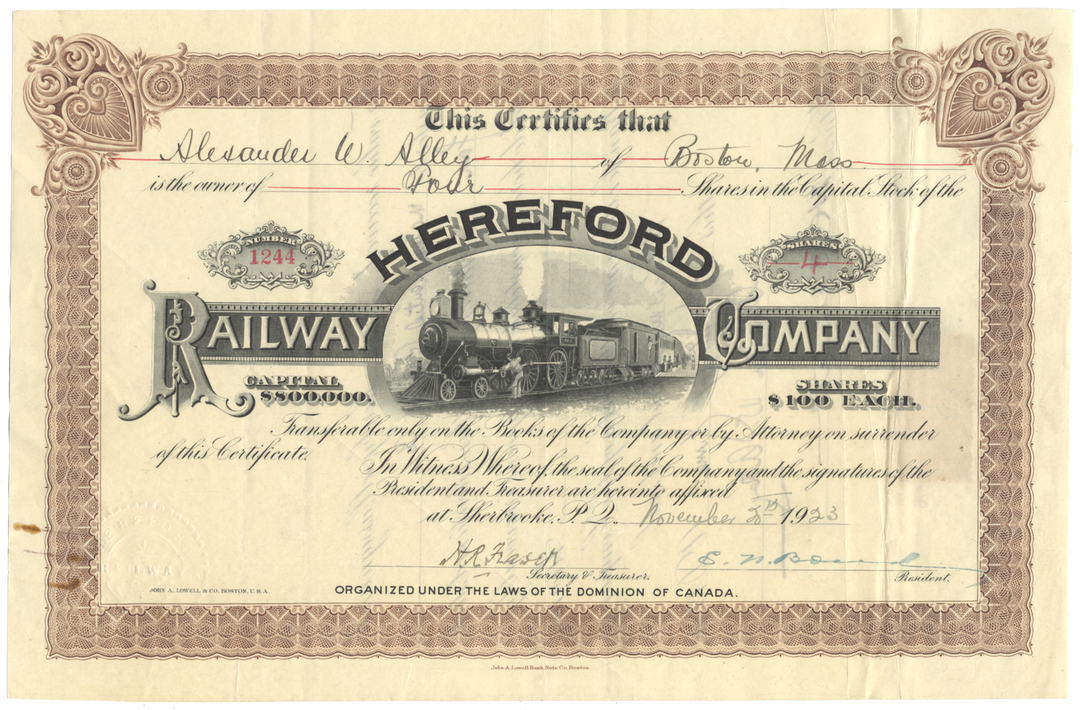 This Certifies that
Alexander W. Alley of Boston, Mass
is the owner of Four Shares in the Capital Stock of the
NUMBER
1244
HEREFORD
SHARES
4
RAILWAY COMPANY
CAPITAL
$800,000.
SHARES
$100 EACH.
Transferable only on the Books of the Company or by Attorney on surrender
of this Certificate.
In Witness Whereof, the seal of the Company and the signatures of the
President and Treasurer are hereinto affixed
at Sherbrooke, P. Q. November 1923
H R Fraser
Secretary & Treasurer.
President.
JOHN A. LOWELL & CO. BOSTON, U.S.A.
ORGANIZED UNDER THE LAWS OF THE DOMINION OF CANADA.
John A. Lowell Bank Note Co. Boston.